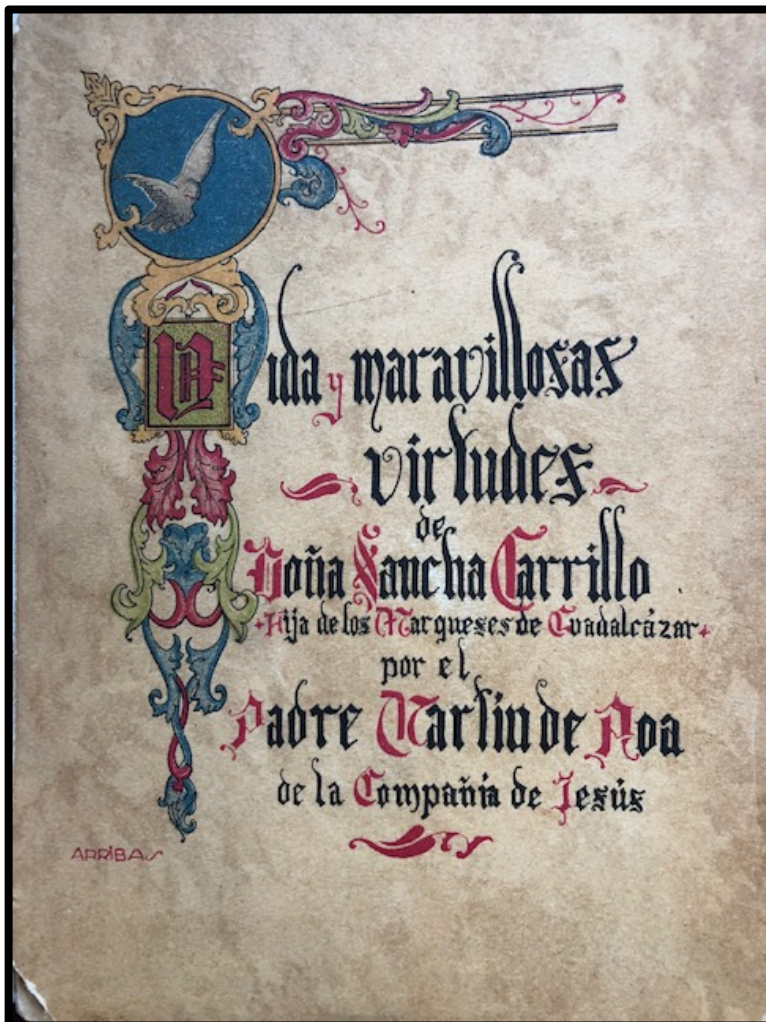 Vida y maravillosas
virtudes
de
Doña Sancha Carrillo
Hija de los Marqueses de Guadalcázar
por el
Padre Martin de Roa
de la Compañía de Jesús
ARRIBAS